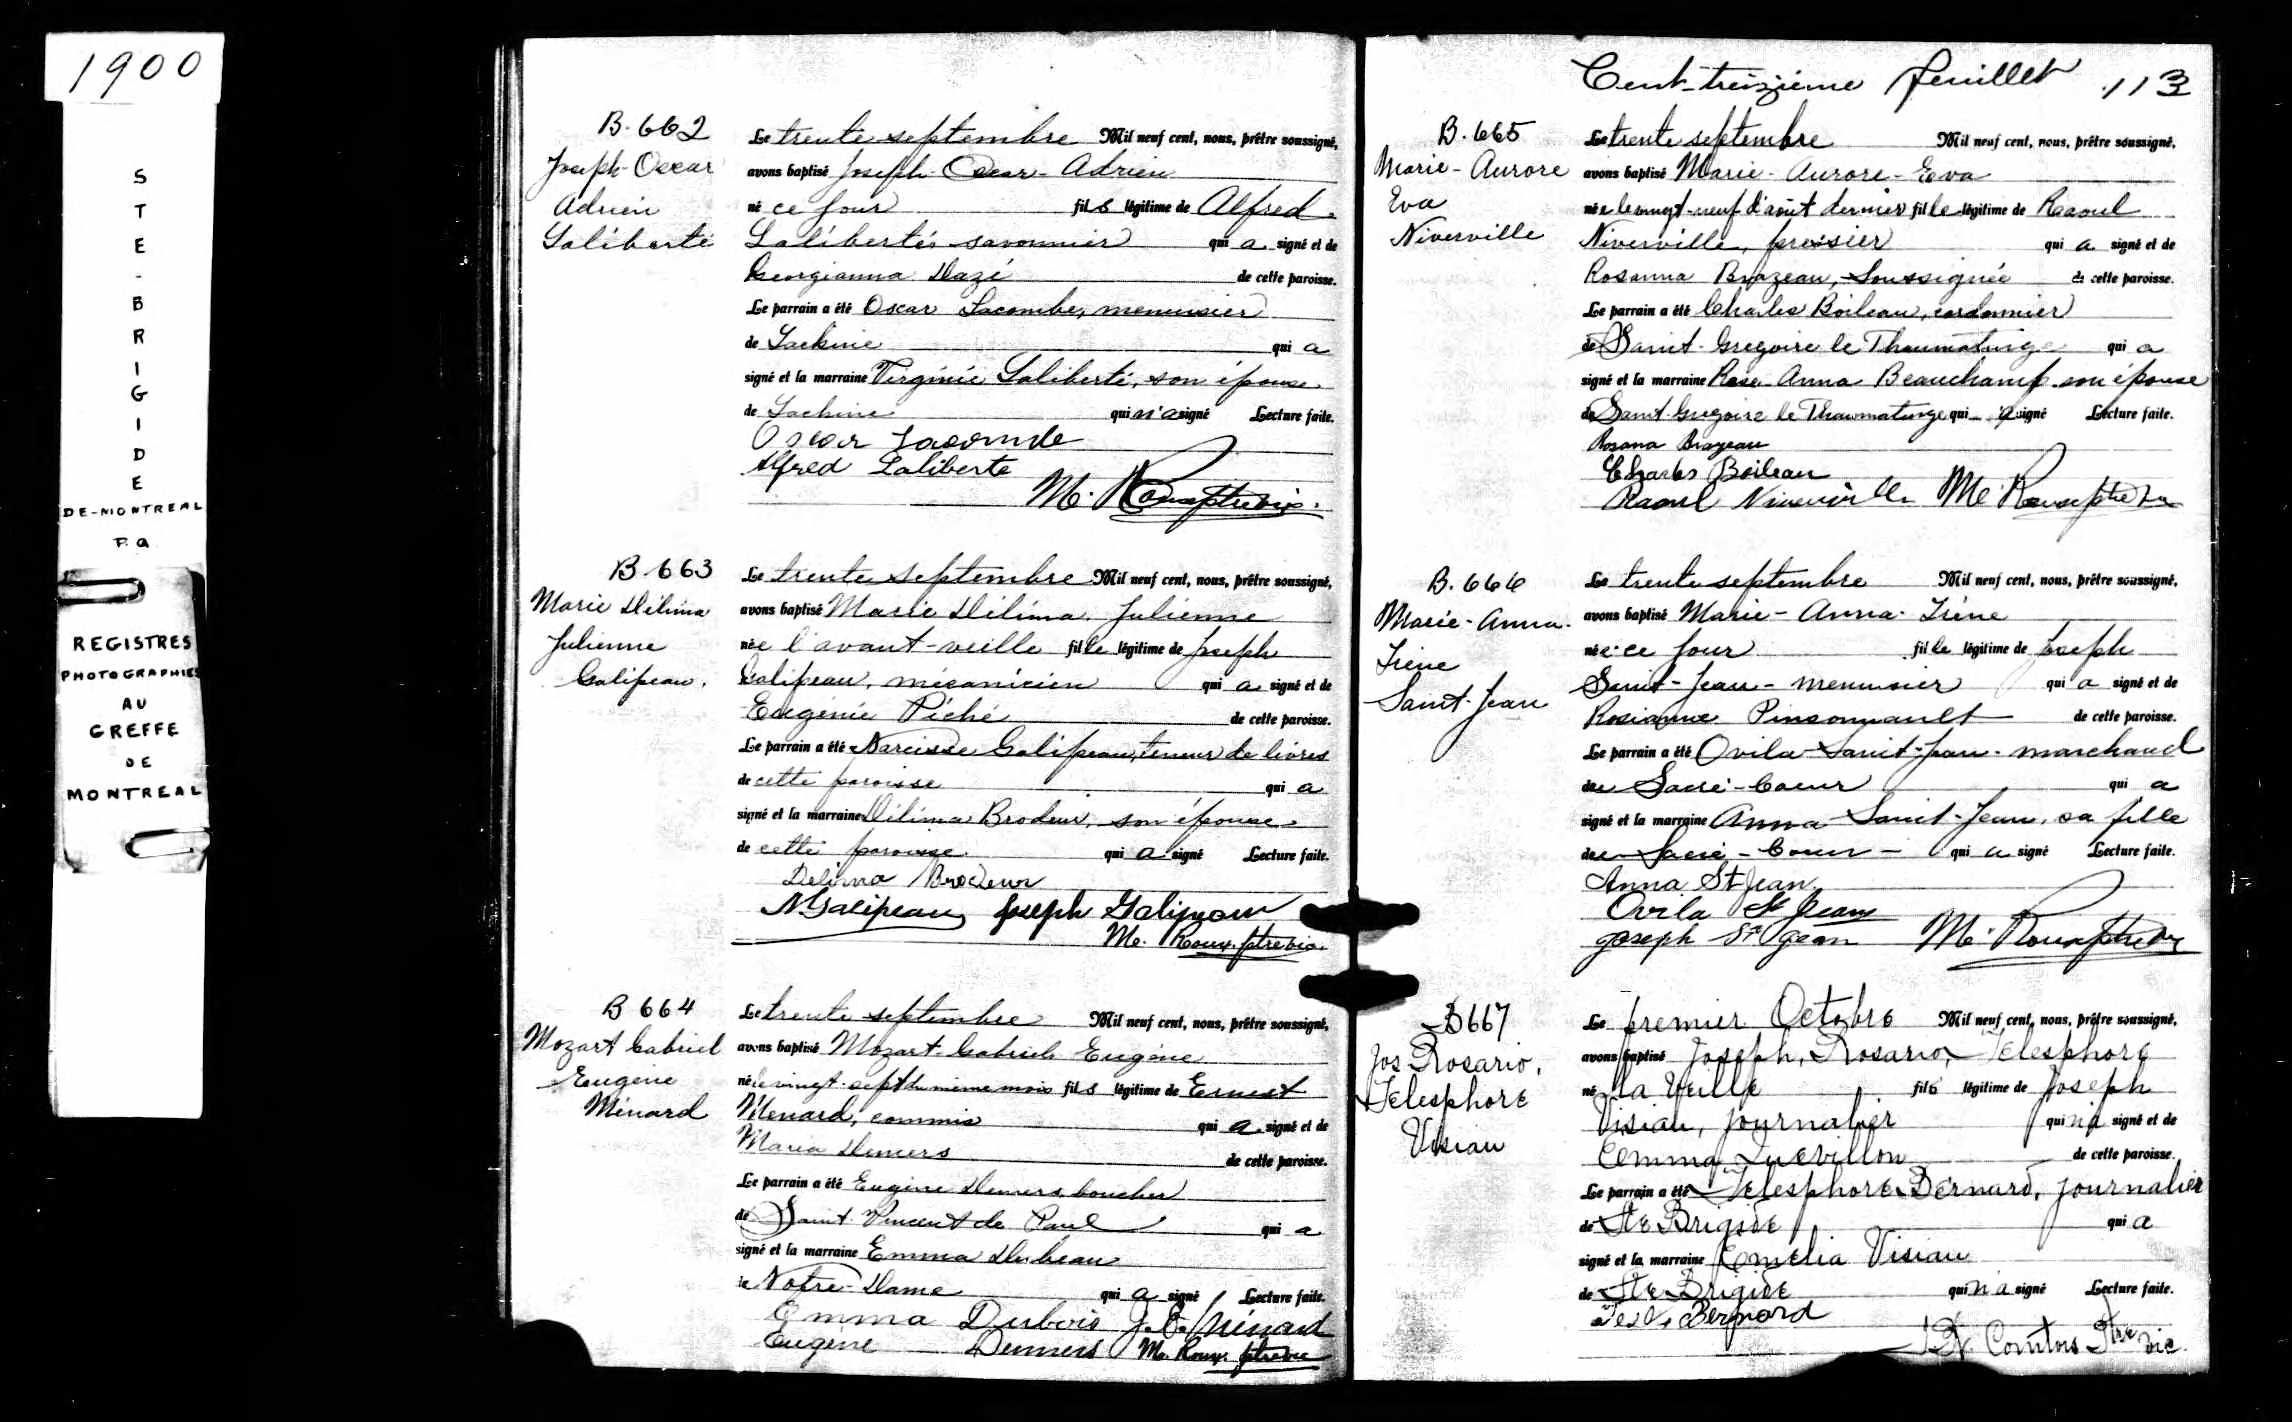 1900
STE-BRIGIDE
DE-MONTREAL
P.Q
REGISTRES
PHOTOGRAPHIES
AU
GREFFE
DE
MONTREAL
B. 662
Joseph-Oscar
Adrien
Laliberté
Le trente septembre Mil neuf cent, nous, prêtre soussigné,
avons baptisé Joseph-Oscar-Adrien
né ce jour fils légitime de Alfred
Laliberté, savonnier qui a signé et de
Georgianna Dazé de cette paroisse.
Le parrain a été Oscar Lacombe, menuisier
de Lachine qui a
signé et la marraine Virginie Laliberté, son épouse
de Lachine qui n'a signé Lecture faite.
Oscar Lacombe
Alfred Laliberte
M. Roux ptre vic.
B. 663
Marie Délima
Julienne
Galipeau.
Le trente septembre Mil neuf cent, nous, prêtre soussigné,
avons baptisé Marie Délima Julienne
née l'avant-veille fille légitime de Joseph
Galipeau, mécanicien qui a signé et de
Eugénie Piché de cette paroisse.
Le parrain a été Narcisse Galipeau, teneur de livres
de cette paroisse qui a
signé et la marraine Délima Brodeur, son épouse
de cette paroisse qui a signé Lecture faite.
Delima Brodeur
N. Galipeau Joseph Galipeau
M. Roux ptre vic.
B 664
Mozart Gabriel
Eugène
Ménard
Le trente septembre Mil neuf cent, nous, prêtre soussigné,
avons baptisé Mozart Gabriel Eugène
né le vingt-sept du même mois fils légitime de Ernest
Ménard, commis qui a signé et de
Maria Demers de cette paroisse.
Le parrain a été Eugène Demers, boucher
de Saint Vincent de Paul qui a
signé et la marraine Emma Dubeau
de Notre-Dame qui a signé Lecture faite.
Emma Dubois J. E. Ménard
Eugène Demers M. Roux ptre vic
Cent-treizième feuillet 113
B. 665
Marie-Aurore
Eva
Niverville
Le trente septembre Mil neuf cent, nous, prêtre soussigné,
avons baptisé Marie-Aurore-Eva
née le vingt-neuf d'août dernier fille légitime de Raoul
Niverville, pressier qui a signé et de
Rosanna Brazeau, soussignée de cette paroisse.
Le parrain a été Charles Boileau, cordonnier
de Saint-Gregoire le Thaumaturge qui a
signé et la marraine Rose-Anna Beauchamp son épouse
de Saint-Gregoire le Thaumaturge qui a signé Lecture faite.
Rosana Brazeau
Charles Boileau
Raoul Niverville M. Roux ptre vic
B. 666
Marie-Anna-
Irène
Saint-Jean
Le trente septembre Mil neuf cent, nous, prêtre soussigné,
avons baptisé Marie-Anna-Irène
née ce jour fille légitime de Joseph
Saint-Jean-menuisier qui a signé et de
Rosianne Pinsonnault de cette paroisse.
Le parrain a été Ovila Saint-Jean-marchand
du Sacré-Coeur qui a
signé et la marraine Anna Saint-Jean, sa fille
du Sacré-Coeur qui a signé Lecture faite.
Anna St Jean
Ovila St Jean
Joseph St Jean M. Roux ptre vic
B 667
Jos Rosario,
Telesphore
Visiau
Le premier Octobre Mil neuf cent, nous, prêtre soussigné,
avons baptisé Joseph, Rosario, Telesphore
né la veille fils légitime de Joseph
Visiau, journalier qui n'a signé et de
Emma Quevillon de cette paroisse.
Le parrain a été Telesphore Bernard, journalier
de Ste Brigide qui a
signé et la marraine Emelia Visiau
de Ste Brigide qui n'a signé Lecture faite.
Bernard
Comtois Ptre vic.